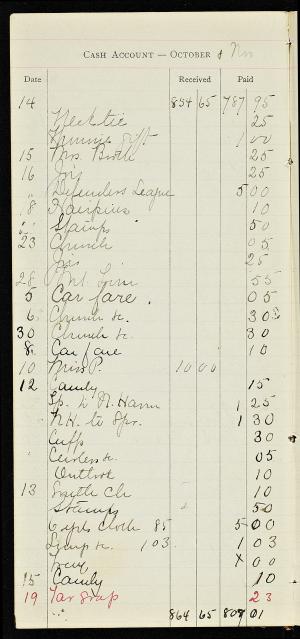 CASH ACCOUNT — OCTOBER & Nov
Date Received Paid
14 854 65 787 95
Necktie 25
Minnie gift 1 00
15 Mrs. Broth 25
16 25
" Defenders League 5 00
18 Hairpins 10
" Stamps 50
23 Church 05
25
28 55
5 Car fare 05
6 Church &c. 30
30 Church &c 30
8 Car fare 10
10 Miss P. 10 00
12 Candy 15
Sp. to N. Haven 1 25
N.H. to Spr. 1 30
Cuffs 30
05
Outlook 10
13 10
Stamps 50
6 yds cloth 85 5 00
&c. 103 1 03
00
15 Candy 10
19 Tar soap 23
864 65 809 01